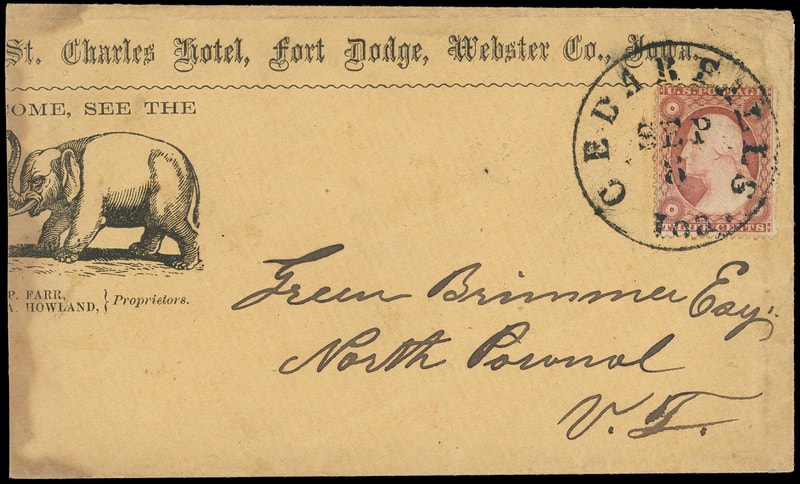 St. Charles Hotel, Fort Dodge, Webster Co., Iowa.
OME, SEE THE
P. FARR,
A. HOWLAND, } Proprietors.
CEDAR FALLS
SEP
8
Ioa.
U.S. POSTAGE
THREE CENTS
Green Brimmer Esq.
North Pownal
V.T.